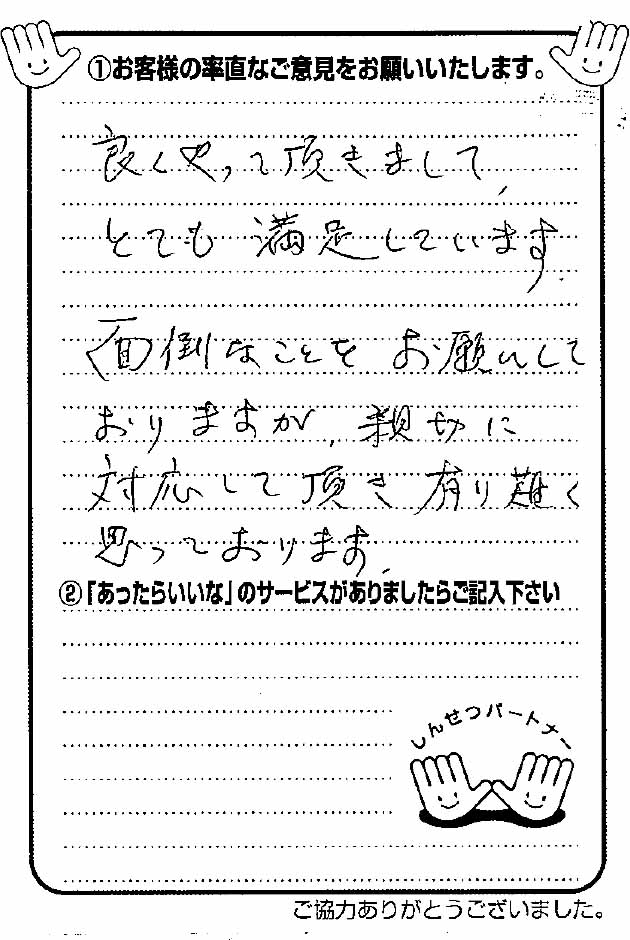 ①お客様の率直なご意見をお願いいたします。
良くやって頂きまして、
とても満足しています。
面倒なことをお願いして
おりますが、親切に
対応して頂き有り難く
思っております。
②「あったらいいな」のサービスがありましたらご記入下さい
しんせつパートナー
ご協力ありがとうございました。